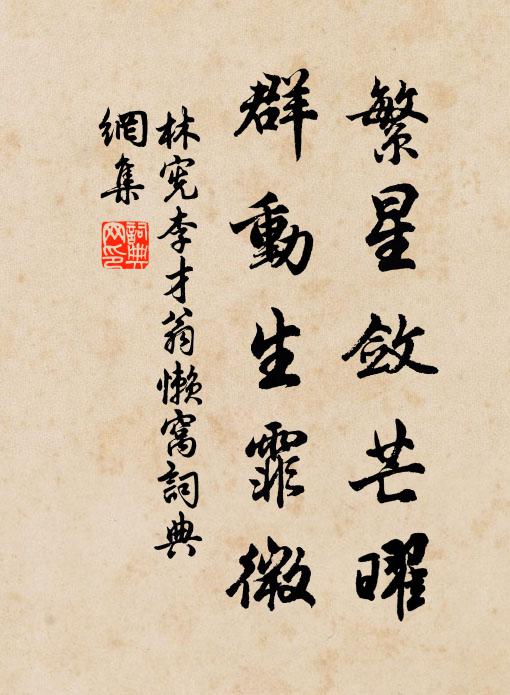 繁星斂芒曜
群動生霏微
林宪李才翁懒窩詞典
網集
詞典
网印